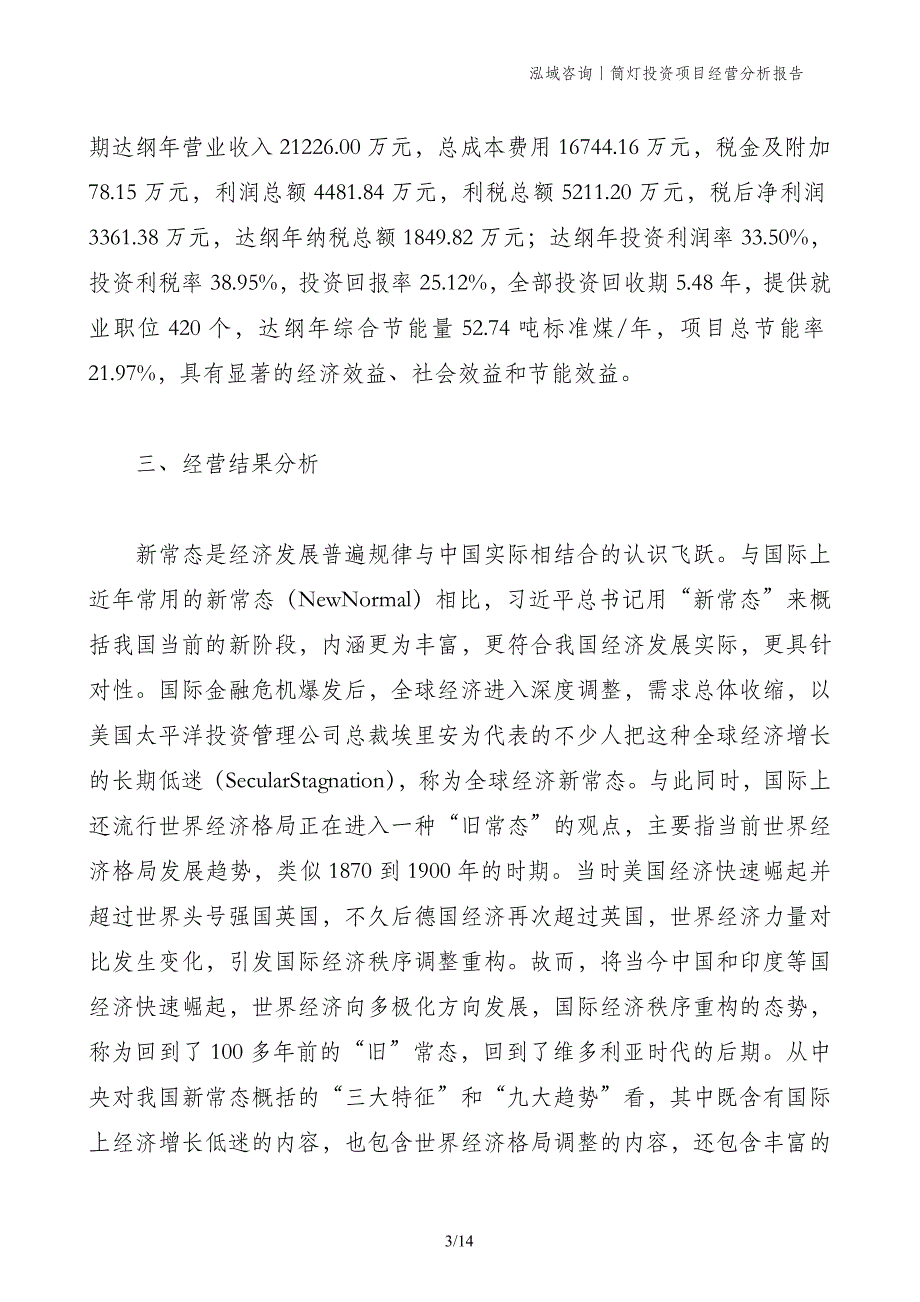 泓域咨询|筒灯投资项目经营分析报告
期达纲年营业收入 21226.00 万元，总成本费用 16744.16 万元，税金及附加
78.15 万元，利润总额 4481.84 万元，利税总额 5211.20 万元，税后净利润
3361.38 万元，达纲年纳税总额 1849.82 万元；达纲年投资利润率 33.50%，
投资利税率 38.95%，投资回报率 25.12%，全部投资回收期 5.48 年，提供就
业职位 420 个，达纲年综合节能量 52.74 吨标准煤/年，项目总节能率
21.97%，具有显著的经济效益、社会效益和节能效益。
三、经营结果分析
新常态是经济发展普遍规律与中国实际相结合的认识飞跃。与国际上
近年常用的新常态（NewNormal）相比，习近平总书记用“新常态”来概
括我国当前的新阶段，内涵更为丰富，更符合我国经济发展实际，更具针
对性。国际金融危机爆发后，全球经济进入深度调整，需求总体收缩，以
美国太平洋投资管理公司总裁埃里安为代表的不少人把这种全球经济增长
的长期低迷（SecularStagnation），称为全球经济新常态。与此同时，国际上
还流行世界经济格局正在进入一种“旧常态”的观点，主要指当前世界经
济格局发展趋势，类似 1870 到 1900 年的时期。当时美国经济快速崛起并
超过世界头号强国英国，不久后德国经济再次超过英国，世界经济力量对
比发生变化，引发国际经济秩序调整重构。故而，将当今中国和印度等国
经济快速崛起，世界经济向多极化方向发展，国际经济秩序重构的态势，
称为回到了 100 多年前的“旧”常态，回到了维多利亚时代的后期。从中
央对我国新常态概括的“三大特征”和“九大趋势”看，其中既含有国际
上经济增长低迷的内容，也包含世界经济格局调整的内容，还包含丰富的
3/14